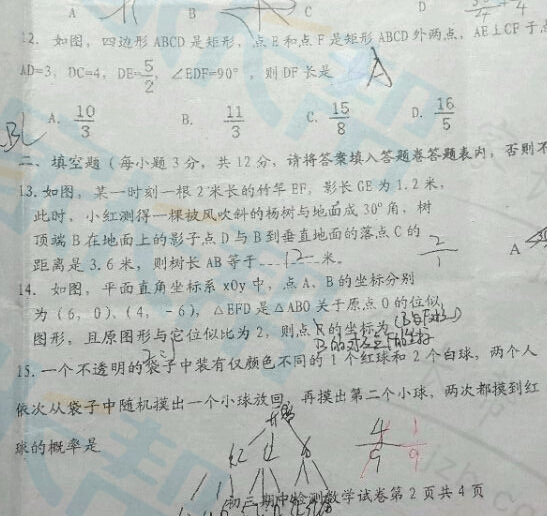 A B C D
12. 如图，四边形ABCD是矩形，点E和点F是矩形ABCD外两点，AE⊥CF于点
AD=3，DC=4，DE=5/2，∠EDF=90°，则DF长是 A
A. 10/3 B. 11/3 C. 15/8 D. 16/5
二、填空题（每小题3分，共12分，请将答案填入答题卷答题表内，否则不
13. 如图，某一时刻一根2米长的竹竿EF，影长GE为1.2米，
此时，小红测得一棵被风吹斜的杨树与地面成30°角，树
顶端B在地面上的影子点D与B到垂直地面的落点C的
距离是3.6米，则树长AB等于 12 米。
2/1 A
14. 如图，平面直角坐标系xOy中，点A、B的坐标分别
为（6，0）、（4，-6），△EFD是△ABO关于原点O的位似
图形，且原图形与它位似比为2，则点F的坐标为
15. 一个不透明的袋子中装有仅颜色不同的1个红球和2个白球，两个人
依次从袋子中随机摸出一个小球放回，再摸出第二个小球，两次都摸到红
球的概率是
4/9 1/9
初三期中检测数学试卷第2页共4页